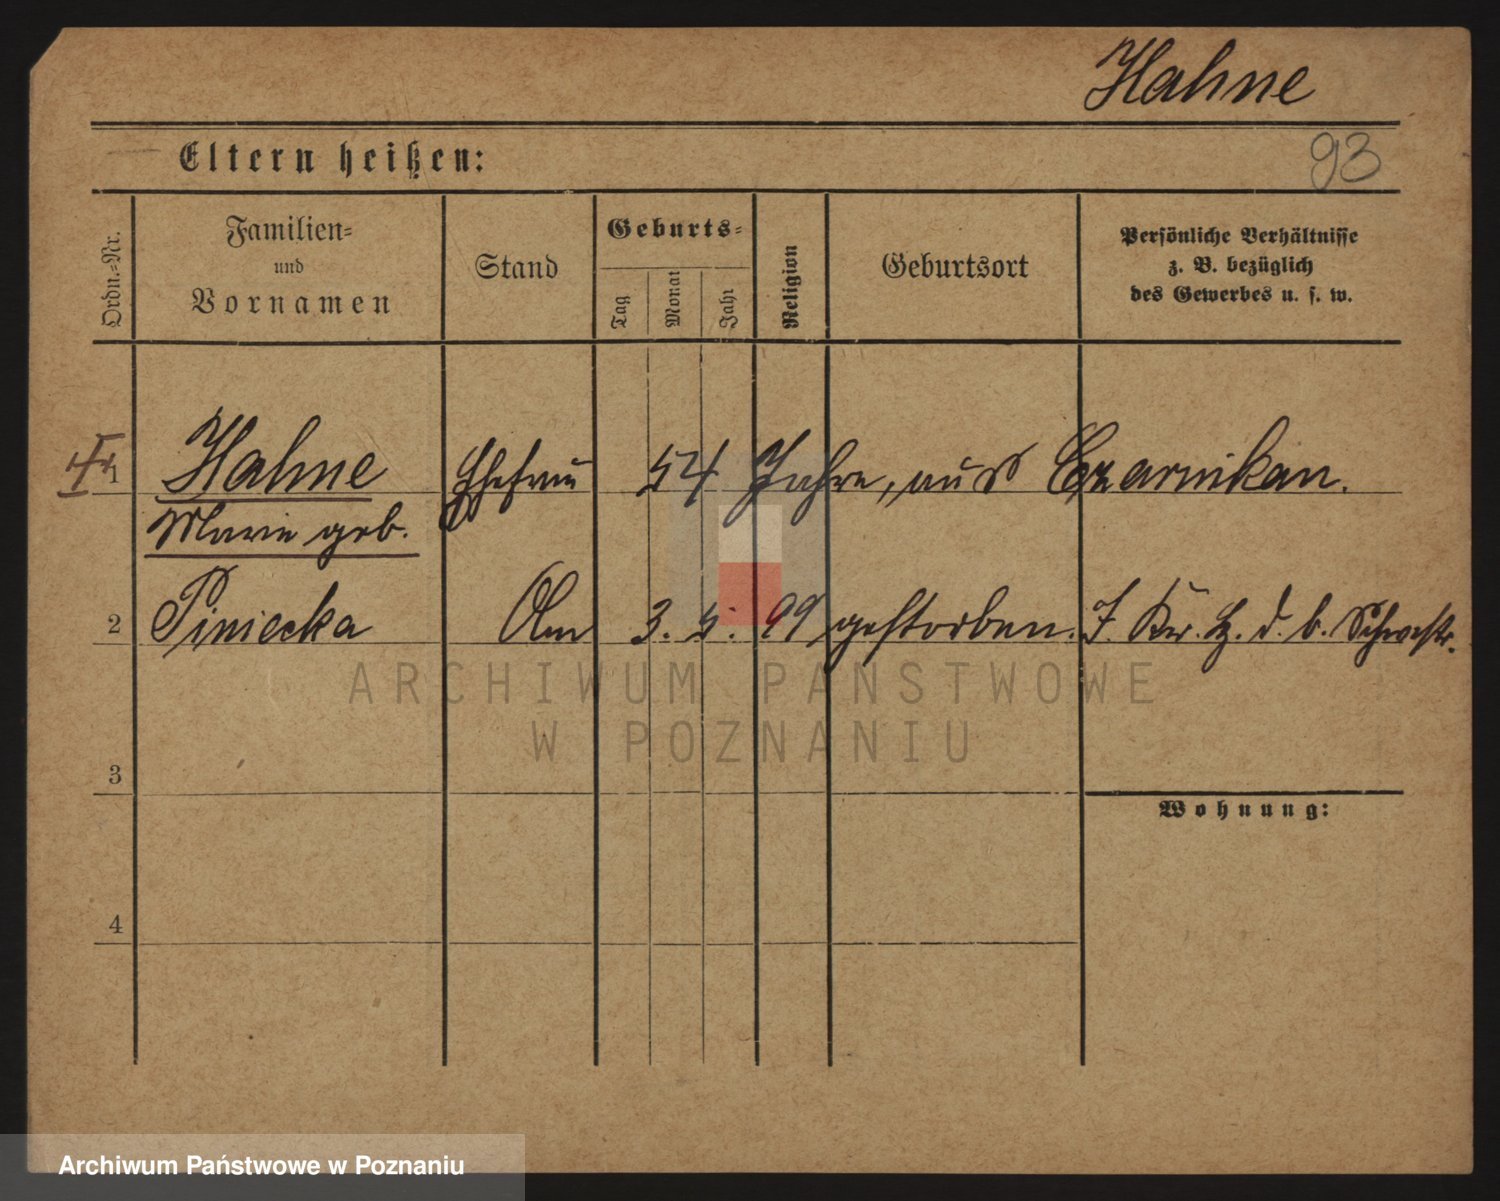 Hahne
93
Eltern heißen:
Ordn.-Nr.
Familien-
und
Vornamen
Stand
Geburts-
Tag
Monat
Jahr
Religion
Geburtsort
Persönliche Verhältnisse
z. B. bezüglich
des Gewerbes u. s. w.
1 Hahne Ehefrau 54 Jahre, aus Czarnikau.
Marie geb.
2 Piniecka Am 3. 5. 99 gestorben. J. Kr. H. d. b. Schwestr.
ARCHIWUM PAŃSTWOWE
W POZNANIU
3
Wohnung:
4
Archiwum Państwowe w Poznaniu